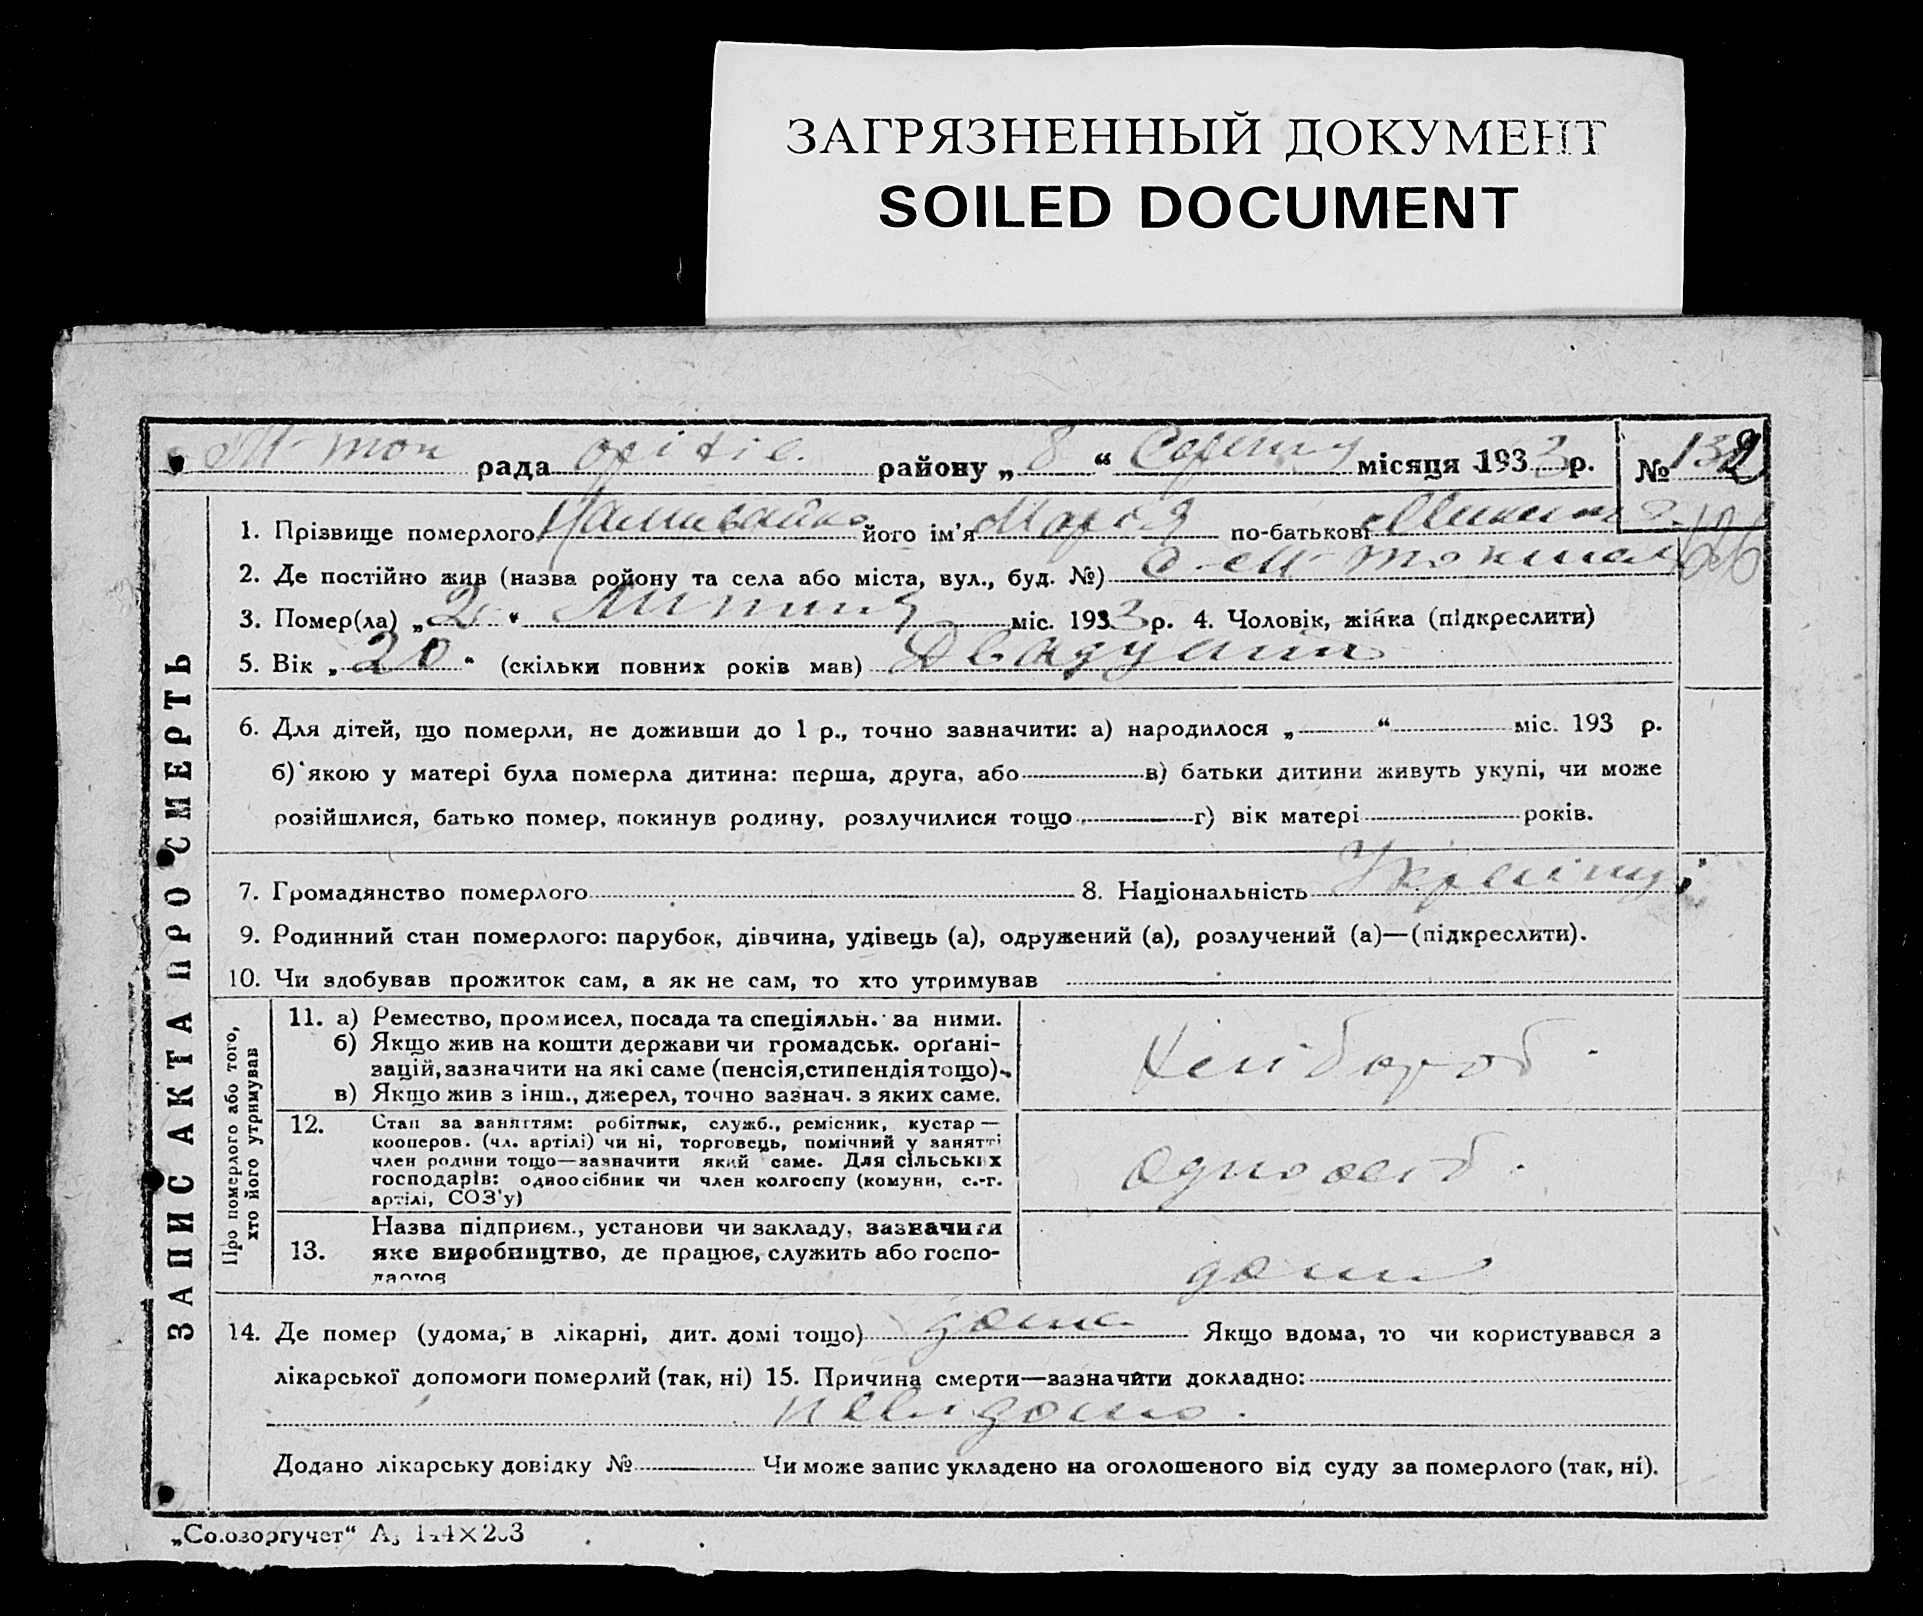 ЗАГРЯЗНЕННЫЙ ДОКУМЕНТ
SOILED DOCUMENT
М-ток рада оріхів. району „8“ Серпня місяця 1933 р. № 132
1. Прізвище померлого Наливайко його ім'я Марія по-батькові
2. Де постійно жив (назва ройону та села або міста, вул., буд. №) с. М Токмач
3. Помер(ла) „2“ Липня міс. 1933 р. 4. Чоловік, жінка (підкреслити)
5. Вік „20“ (скільки повних років мав) Двадцать
6. Для дітей, що померли, не доживши до 1 р., точно зазначити: а) народилося „ “ міс. 193 р.
б) якою у матері була померла дитина: перша, друга, або в) батьки дитини живуть укупі, чи може
розійшлися, батько помер, покинув родину, розлучилися тощо г) вік матері років.
7. Громадянство померлого 8. Національність Українці
9. Родинний стан померлого: парубок, дівчина, удівець (а), одружений (а), розлучений (а)—(підкреслити).
10. Чи здобував прожиток сам, а як не сам, то хто утримував
ЗАПИС АКТА ПРО СМЕРТЬ
Про померлого або того,
хто його утримував
11. а) Ремество, промисел, посада та спеціяльн. за ними.
б) Якщо жив на кошти держави чи громадськ. орґані-
зацій, зазначити на які саме (пенсія, стипендія тощо).
в) Якщо жив з інш., джерел, точно зазнач. з яких саме.
Хлібороб.
12. Стан за заняттям: робітник, служб., ремісник, кустар—
кооперов. (чл. артілі) чи ні, торговець, помічний у занятті
член родини тощо—зазначити який саме. Для сільських
господарів: одноосібник чи член колгоспу (комуни, с.-г.
артілі, СОЗ'у)
одноосіб.
13. Назва підприєм., установи чи закладу, зазначити
яке виробництво, де працює, служить або госпо-
дарює
дома
14. Де помер (удома, в лікарні, дит. домі тощо) дома Якщо вдома, то чи користувався з
лікарської допомоги померлий (так, ні) 15. Причина смерти—зазначити докладно:
невидомо.
Додано лікарську довідку № Чи може запис укладено на оголошеного від суду за померлого (так, ні).
„Союзоргучет“